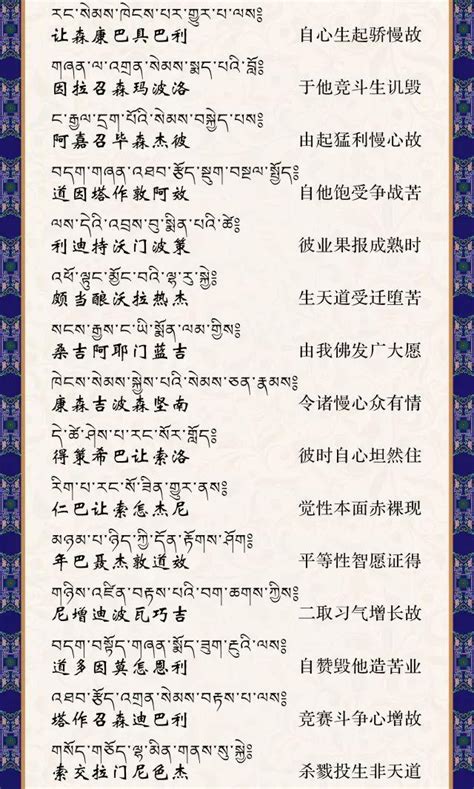 རང་སེམས་ཁེངས་པར་གྱུར་པ་ལས༔
让森康巴具巴利 自心生起骄慢故
གཞན་ལ་འགྲན་སེམས་སྨད་པའི་བློ༔
因拉召森玛波洛 于他竞斗生讥毁
ང་རྒྱལ་དྲག་པོའི་སེམས་བསྐྱེད་པས༔
阿嘉召毕森杰彼 由起猛利慢心故
བདག་གཞན་འཐབ་རྩོད་སྡུག་བསྔལ་སྤྱོད༔
道因塔作敦阿效 自他饱受争战苦
ལས་དེའི་འབྲས་བུ་སྨིན་པའི་ཚེ༔
利迪特沃门波策 彼业果报成熟时
འཕོ་ལྟུང་མྱོང་བའི་ལྷ་རུ་སྐྱེ༔
颇当酿沃拉热杰 生天道受迁堕苦
སངས་རྒྱས་ང་ཡི་སྨོན་ལམ་གྱིས༔
桑吉阿耶门蓝吉 由我佛发广大愿
ཁེངས་སེམས་སྐྱེས་པའི་སེམས་ཅན་རྣམས༔
康森吉波森坚南 令诸慢心众有情
དེ་ཚེ་ཤེས་པ་རང་སོར་གློད༔
得策希巴让索洛 彼时自心坦然住
རིག་པ་རང་སོ་ཟིན་གྱུར་ནས༔
仁巴让索怎杰尼 觉性本面赤裸现
མཉམ་པ་ཉིད་ཀྱི་དོན་རྟོགས་ཤོག༔
年巴聂杰敦道效 平等性智愿证得
གཉིས་འཛིན་བརྟས་པའི་བག་ཆགས་ཀྱིས༔
尼增迪波瓦巧吉 二取习气增长故
བདག་བསྟོད་གཞན་སྨོད་ཟུག་རྔུའི་ལས༔
道多因莫怎恩利 自赞毁他造苦业
འཐབ་རྩོད་འགྲན་སེམས་བརྟས་པ་ལས༔
塔作召森迪巴利 竞赛斗争心增故
གསོད་གཅོད་ལྷ་མིན་གནས་སུ་སྐྱེ༔
索交拉门尼色杰 杀戮投生非天道